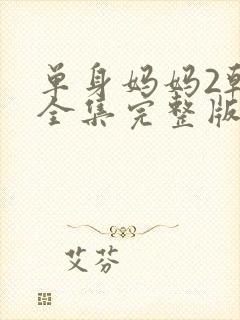 单身妈妈2韩
全集完整版
艾芬